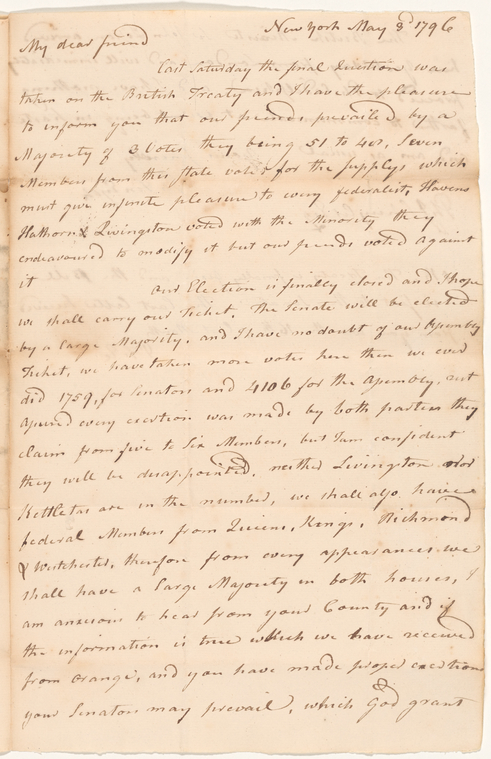 New York May 3d 1796
My dear friend
Last Saturday the final Question was
taken on the British Treaty and I have the pleasure
to inform you that our friends prevailed by a
Majority of 3 Votes they being 51 to 48, Seven
Members from this State voted for the supplys which
must give infinite pleasure to every federalist, Havens
Hathorn & Livingston voted with the Minority they
endeavoured to modify it but our friends voted against
it our Election is finally closed and I hope
we shall carry our Ticket. The Senate will be elected
by a Large Majority. and I have no doubt of our Assembly
Ticket, we have taken more votes here then we ever
did 1759, for Senators and 4106 for the Assembly, rest
assured every exertion was made by both parties they
claim from five to Six Members, but I am confident
they will be disappointed. neither Livingston nor
Kettletas are in the number, we shall also have
federal Members from Queens, Kings, Richmond
& Westchester, therefore from every appearances we
shall have a Large Majority in both houses, I
am anxious to hear from your County and if
the information is true which we have received
from Orange, and you have made proper exertions
your Senators may prevail, which God grant